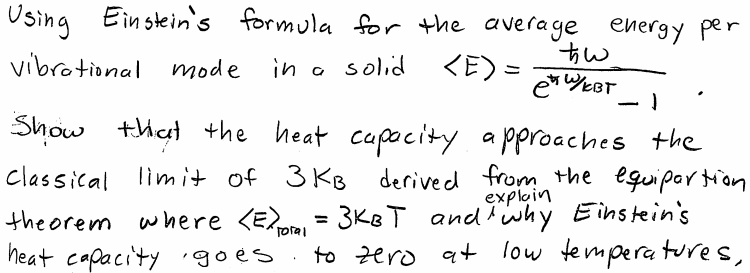 Using Einstein's formula for the average energy per
vibrational mode in a solid <E> = ħω / (e^{ħω/kBT} - 1) .
Show that the heat capacity approaches the
classical limit of 3KB derived from the equipartion
theorem where <E>TOTAL = 3KBT and explain why Einstein's
heat capacity goes to zero at low temperatures,